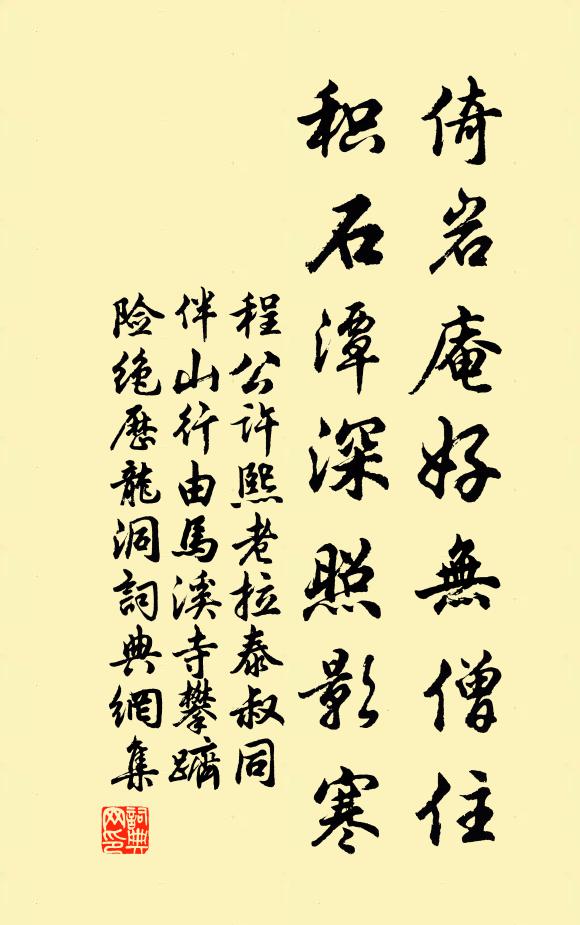 倚岩庵好無僧住
积石潭深照影寒
程公许熙老拉泰叔同
伴山行由馬溪寺攀躋
险绝歷龍洞詞典網集
詞典網印